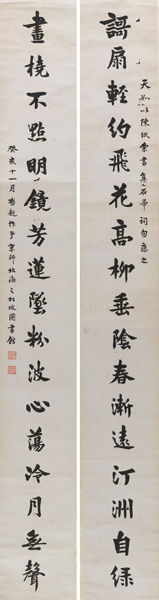 天以陳紙索書集石帚詞句應之
謌扇輕約飛花高柳垂陰春漸遠汀洲自綠
畫橈不點明鏡芳蓮墜粉波心蕩冷月無聲
癸亥十一月啟超作于京師北海之松坡圖書館